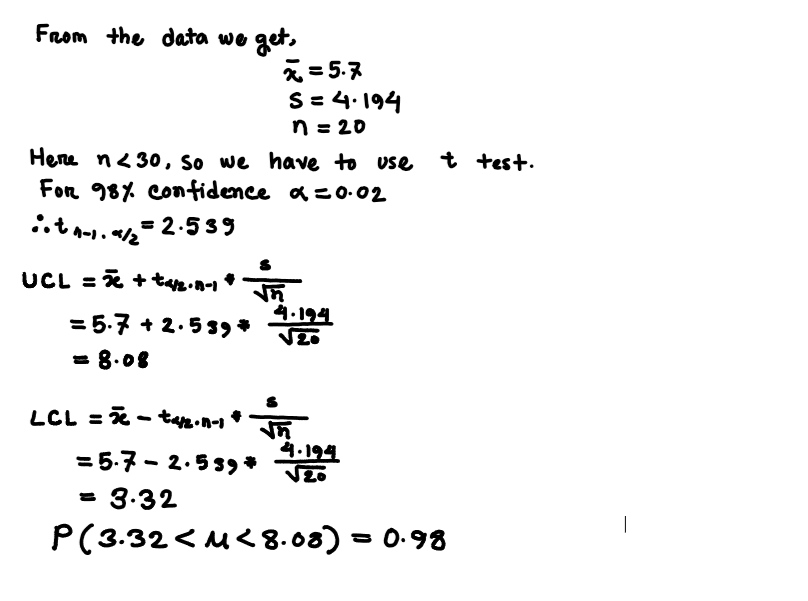 From the data we get,
x̄ = 5.7
S = 4.194
n = 20
Here n < 30, so we have to use t test.
For 98% confidence α = 0.02
∴ t n-1, α/2 = 2.539
UCL = x̄ + t α/2, n-1 * s/√n
= 5.7 + 2.539 * 4.194/√20
= 8.08
LCL = x̄ - t α/2, n-1 * s/√n
= 5.7 - 2.539 * 4.194/√20
= 3.32
P(3.32 < μ < 8.08) = 0.98